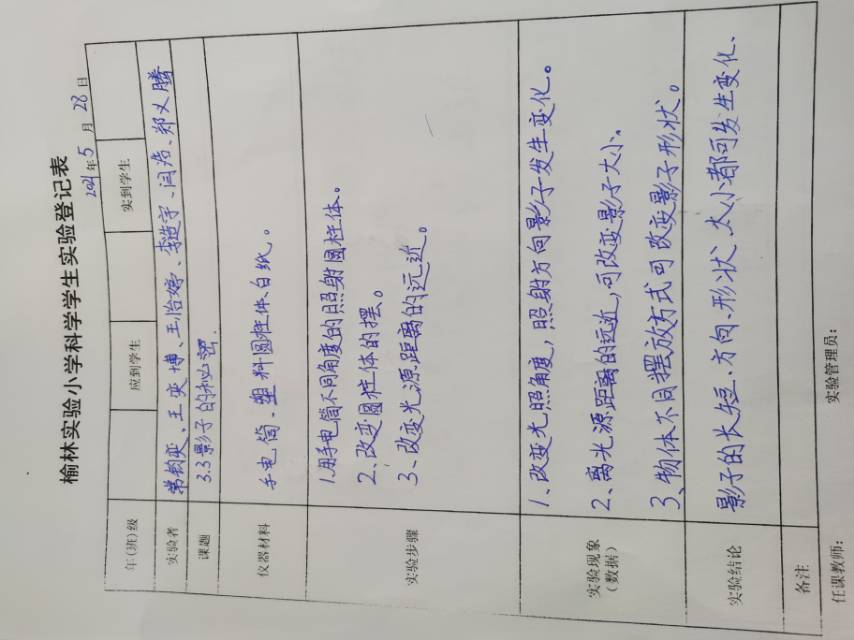 榆林实验小学科学学生实验登记表
2021年5月28日
年(班)级 应到学生 实到学生
实验者 王奕博、王怡婷、李浩宇、闫浩、郑义腾
课题 3.3影子的秘密.
仪器材料 手电筒、塑料圆柱体白纸。
实验步骤
1.用手电筒不同角度的照射圆柱体。
2、改变圆柱体的摆。
3、改变光源距离的远近。
实验现象
(数据)
1、改变光照角度，照射方向影子发生变化。
2、离光源距离的远近，可改变影子大小。
3、物体不同摆放方式可改变影子形状。
实验结论 影子的长短、方向、形状、大小都可发生变化、
备注
任课教师： 实验管理员：